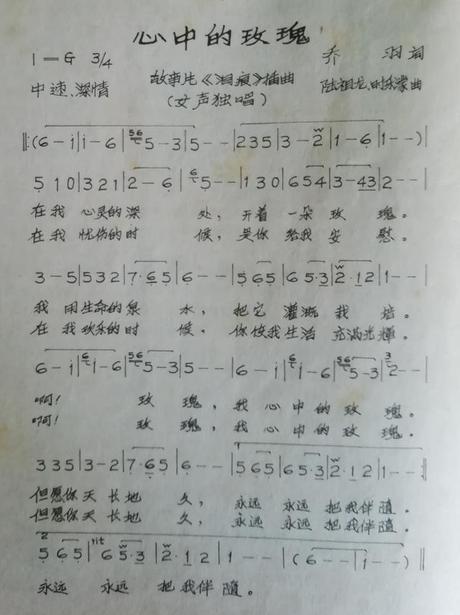 心中的玫瑰
1=G 3/4 乔羽词
中速.深情 故事片《泪痕》插曲 陆祖龙.时乐濛曲
(女声独唱)
‖:(6-i|i-6|56 5-3|5--|235|3-2|1-6|1--)|
5 1 0|3 2 1|2-6|6 5--|1 3 0|6 5 4|3-43|2--|
在我 心灵的深 处,开着 一朵 玫 瑰。
在我 忧伤的时 候,是你 给我 安 慰。
3-5|5 3 2|7·6 5|6--|5 6 5|6 5·3|2·1 2|1--|
我 用生命的泉 水, 把它 灌溉 我 培。
在 我欢乐的时 候。 你使我生活 充满光辉。
6-i|6 i-6|56 5-3|5--|6-i|6 i-6|56 5-3|3 2--|
啊! 玫 瑰, 我 心 中 的 玫 瑰。
啊! 玫 瑰, 我 心 中 的 玫 瑰。
3 3 5|3-2|7·6 5|6--|1 5 6 5|6 5·3|2·1 2|1--:‖
但愿你天 长地 久, 永远 永远 把我伴随。
但愿你天 长地 久, 永远 永远 把我伴随。
2 5 6 5|rit 6 5·3|2·1 2|1--|(6--|i--)‖
永远 永远 把我伴 随。